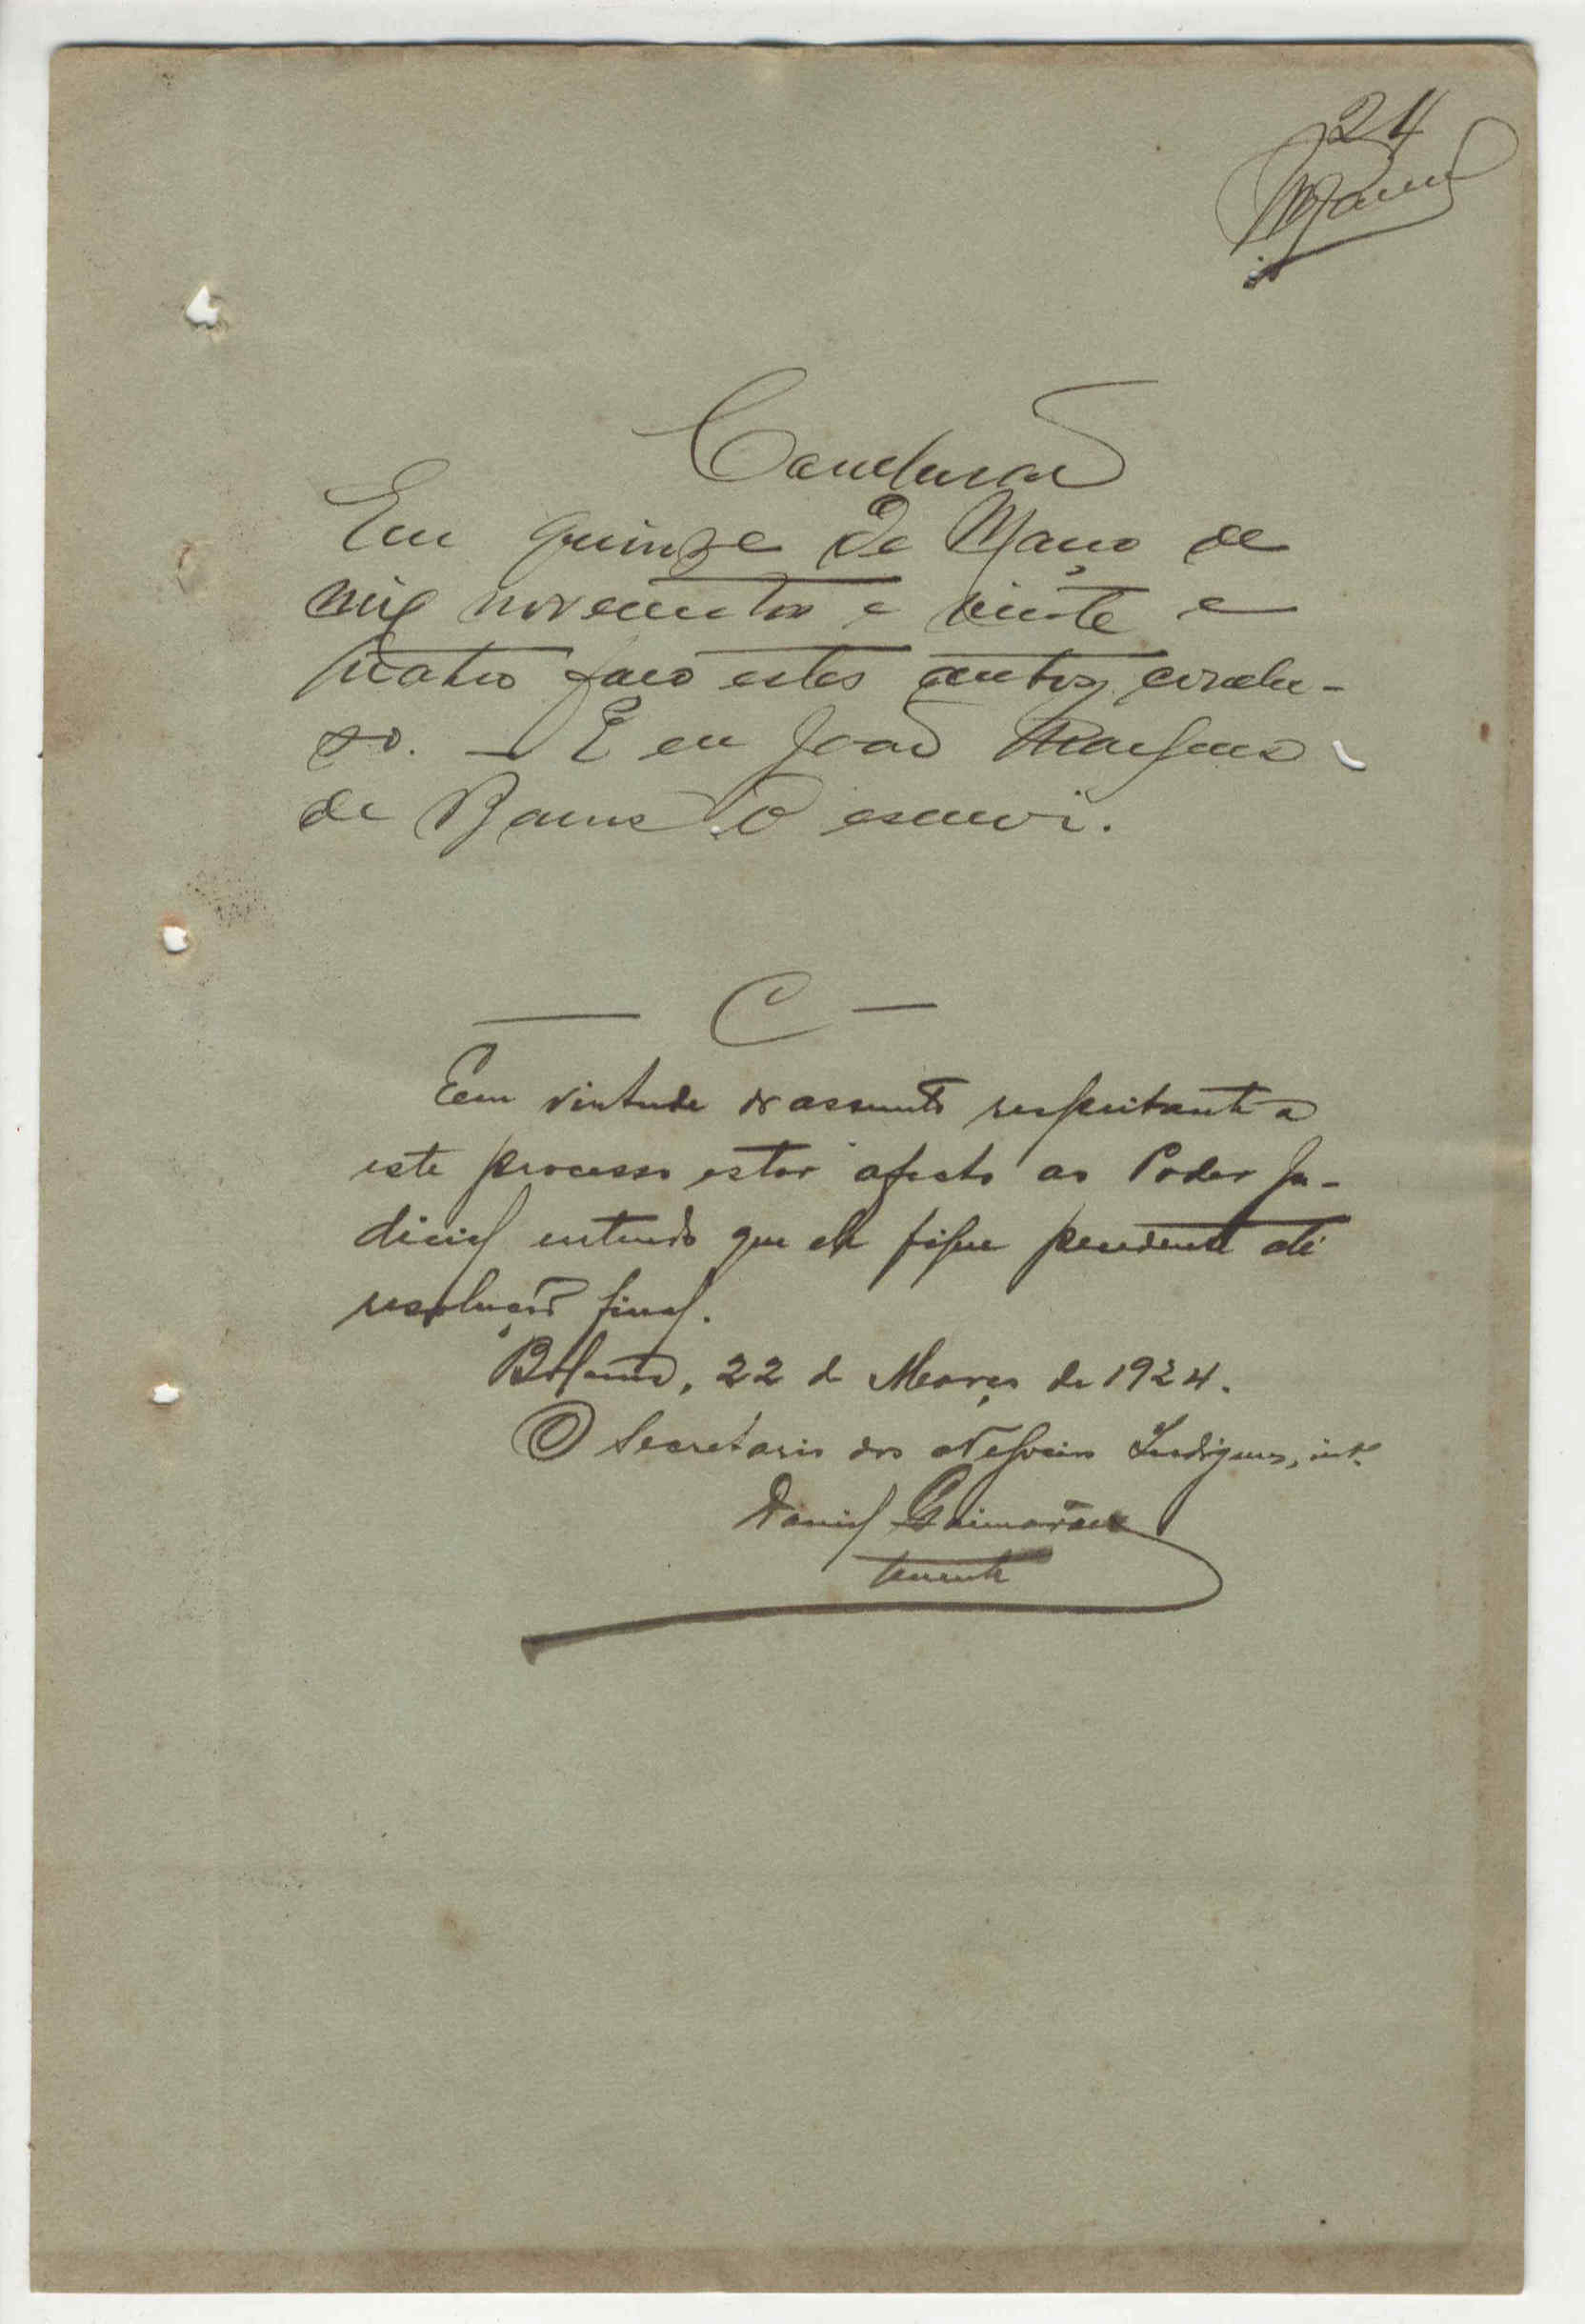 24
Conclusão
Em quinze de Março de
mil novecentos e vinte e
quatro faço estes autos conclu-
so. — E eu João
de Barros o escrevi.
— C —
Em virtude do assunto respeitante a
este processo estar afecto ao Poder Ju-
dicial entendo que ele fique pendente até
resolução final.
Bolama, 22 de Março de 1924.
O Secretario dos Negocios Indigenas, int.º
Daniel Guimarães
tenente